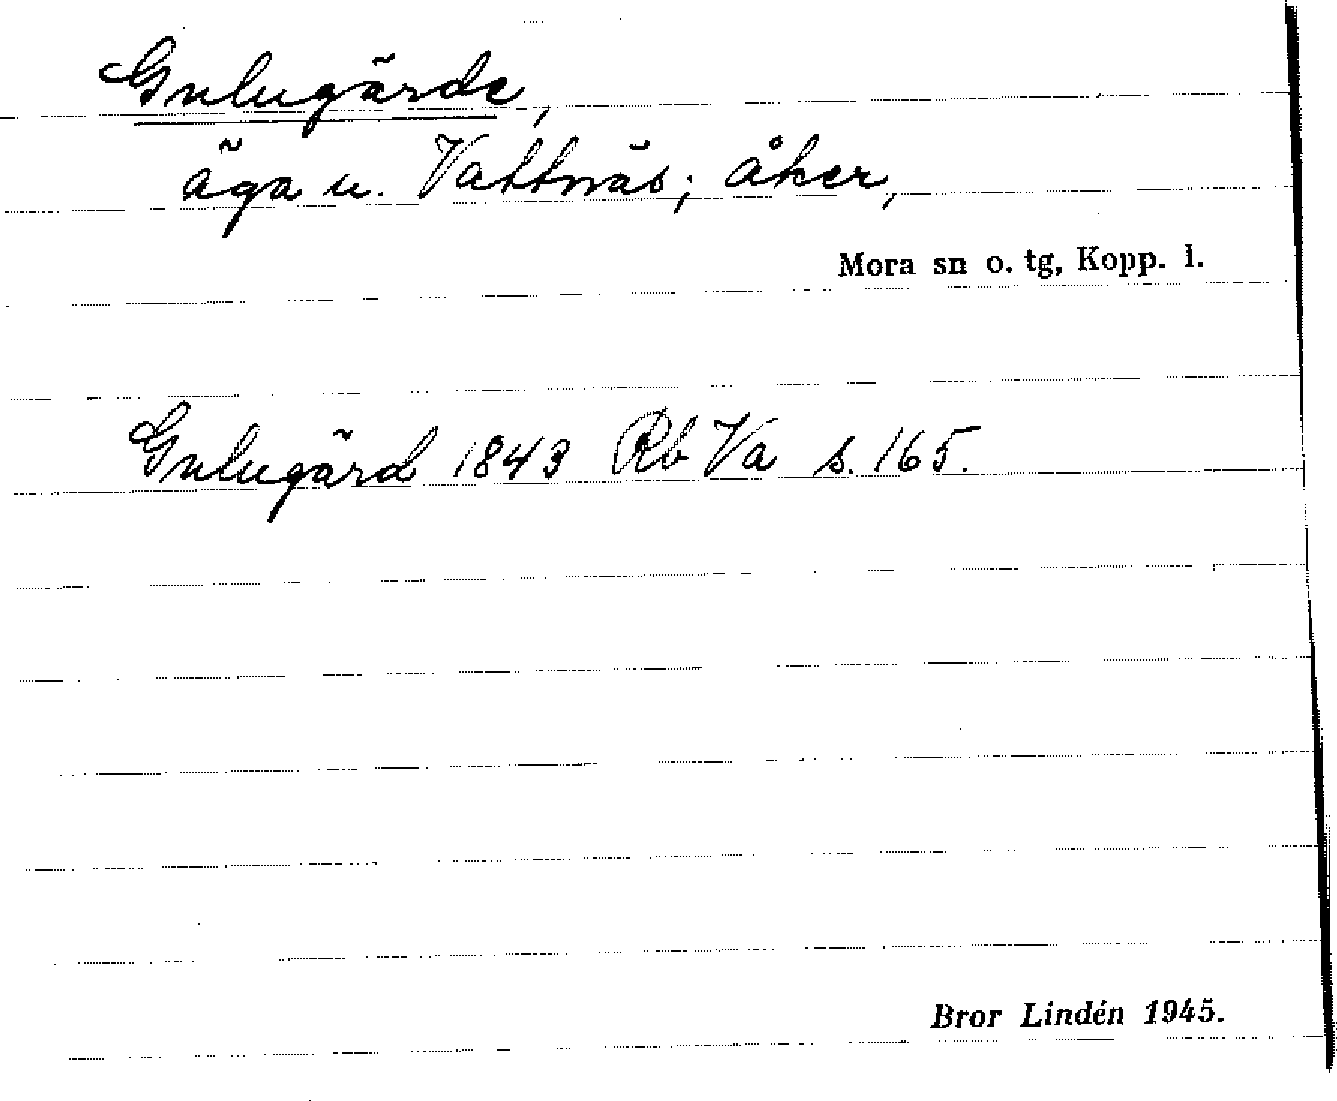 Gnlugärde,
äga u. Vattnäs; åker,
Mora sn o. tg, Kopp. l.
Gnlugärd 1843 Rb Va s. 165.
Bror Lindén 1945.